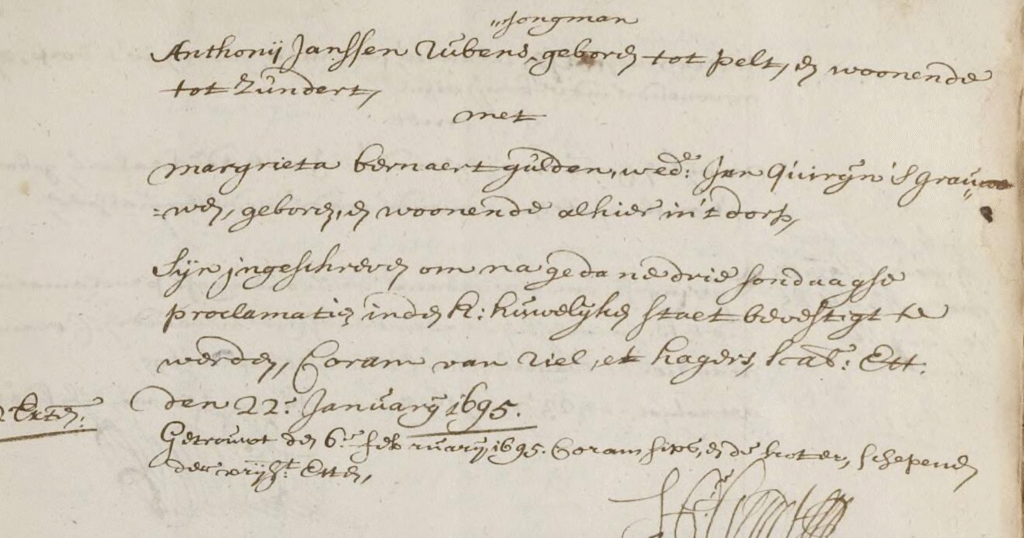 „Jongman
Anthonij Janssen Rubens, geboren tot pelt, en woonende
tot Zundert,
met
margrieta bernaert gulden, wede: Jan Quirijn 'S grau„
„wen, geboren, en woonende alhier in't dorp,
Sijn jngeschreven om na gedane drie sondaagse
proclamatien inden h: huwelijken staet bevestigt te
werden, Coram van Riel, et hagers, scab: Ett.
Etten:
den 22e. January 1695.
Getrouwt den 6e february 1695. Coram en de koter, schepenen
der vrijht. Etten,